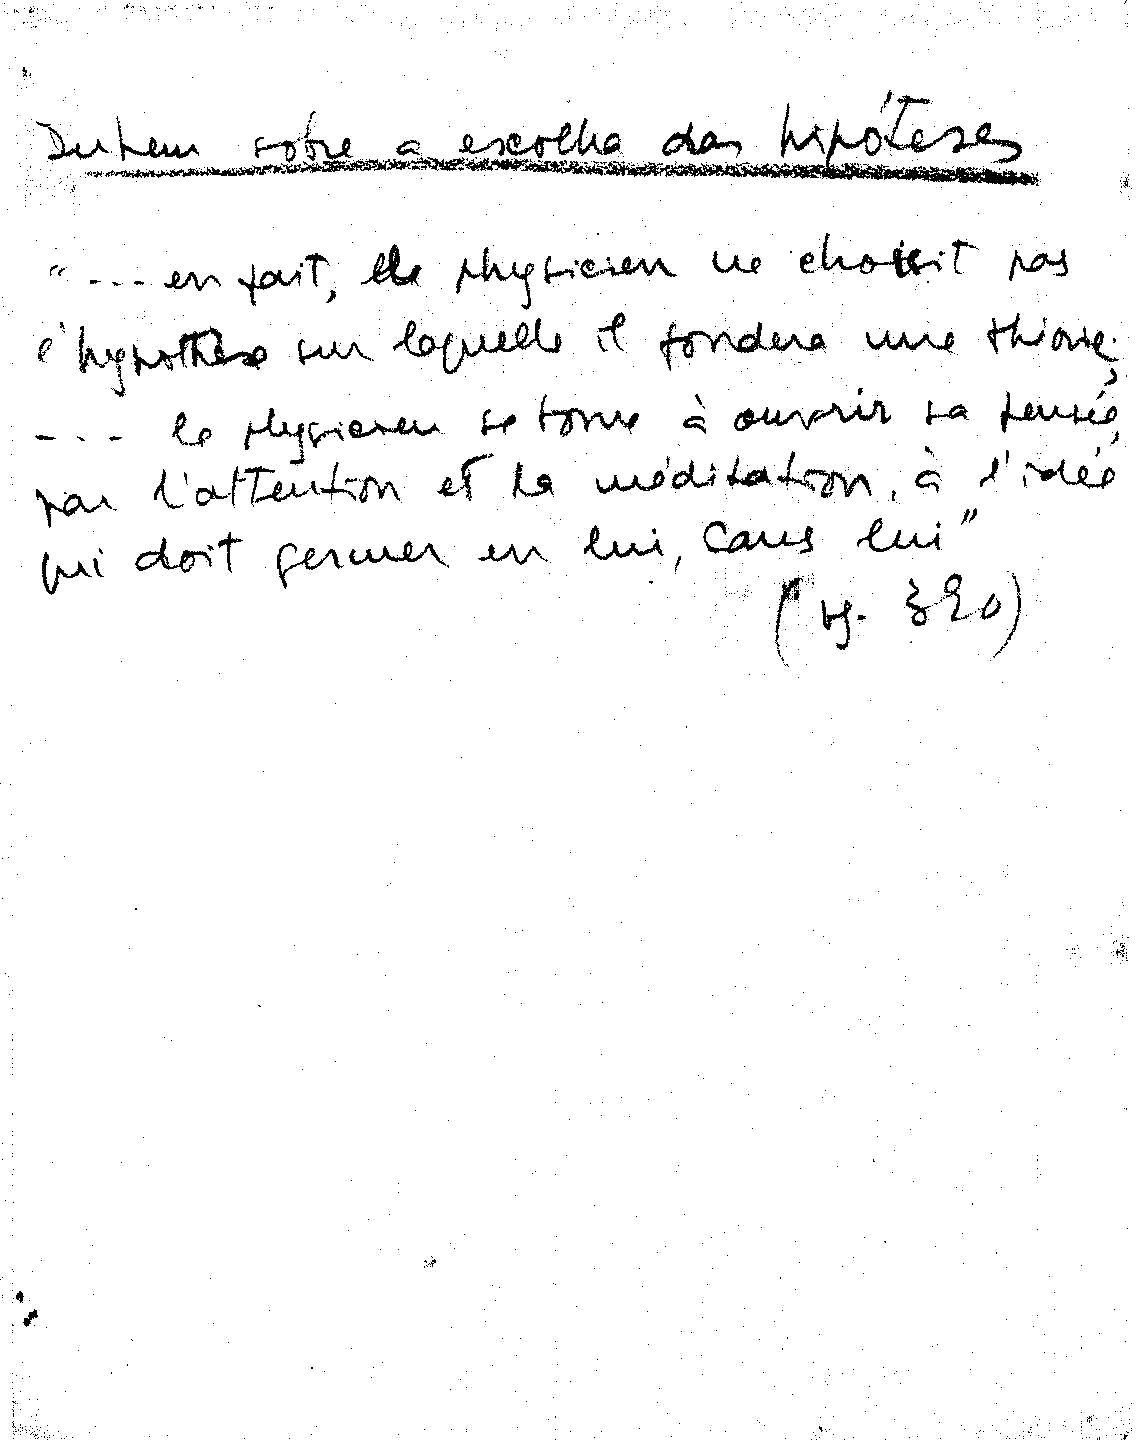 Duhem sobre a escolha das hipóteses
"--- en fait, le physicien ne choisit pas
l'hypothèse sur laquelle il fondera une théorie;
--- le physicien se borne à ouvrir sa pensée,
par l'attention et la méditation, à l'idée
qui doit germer en lui, sans lui"
(pg. 390)